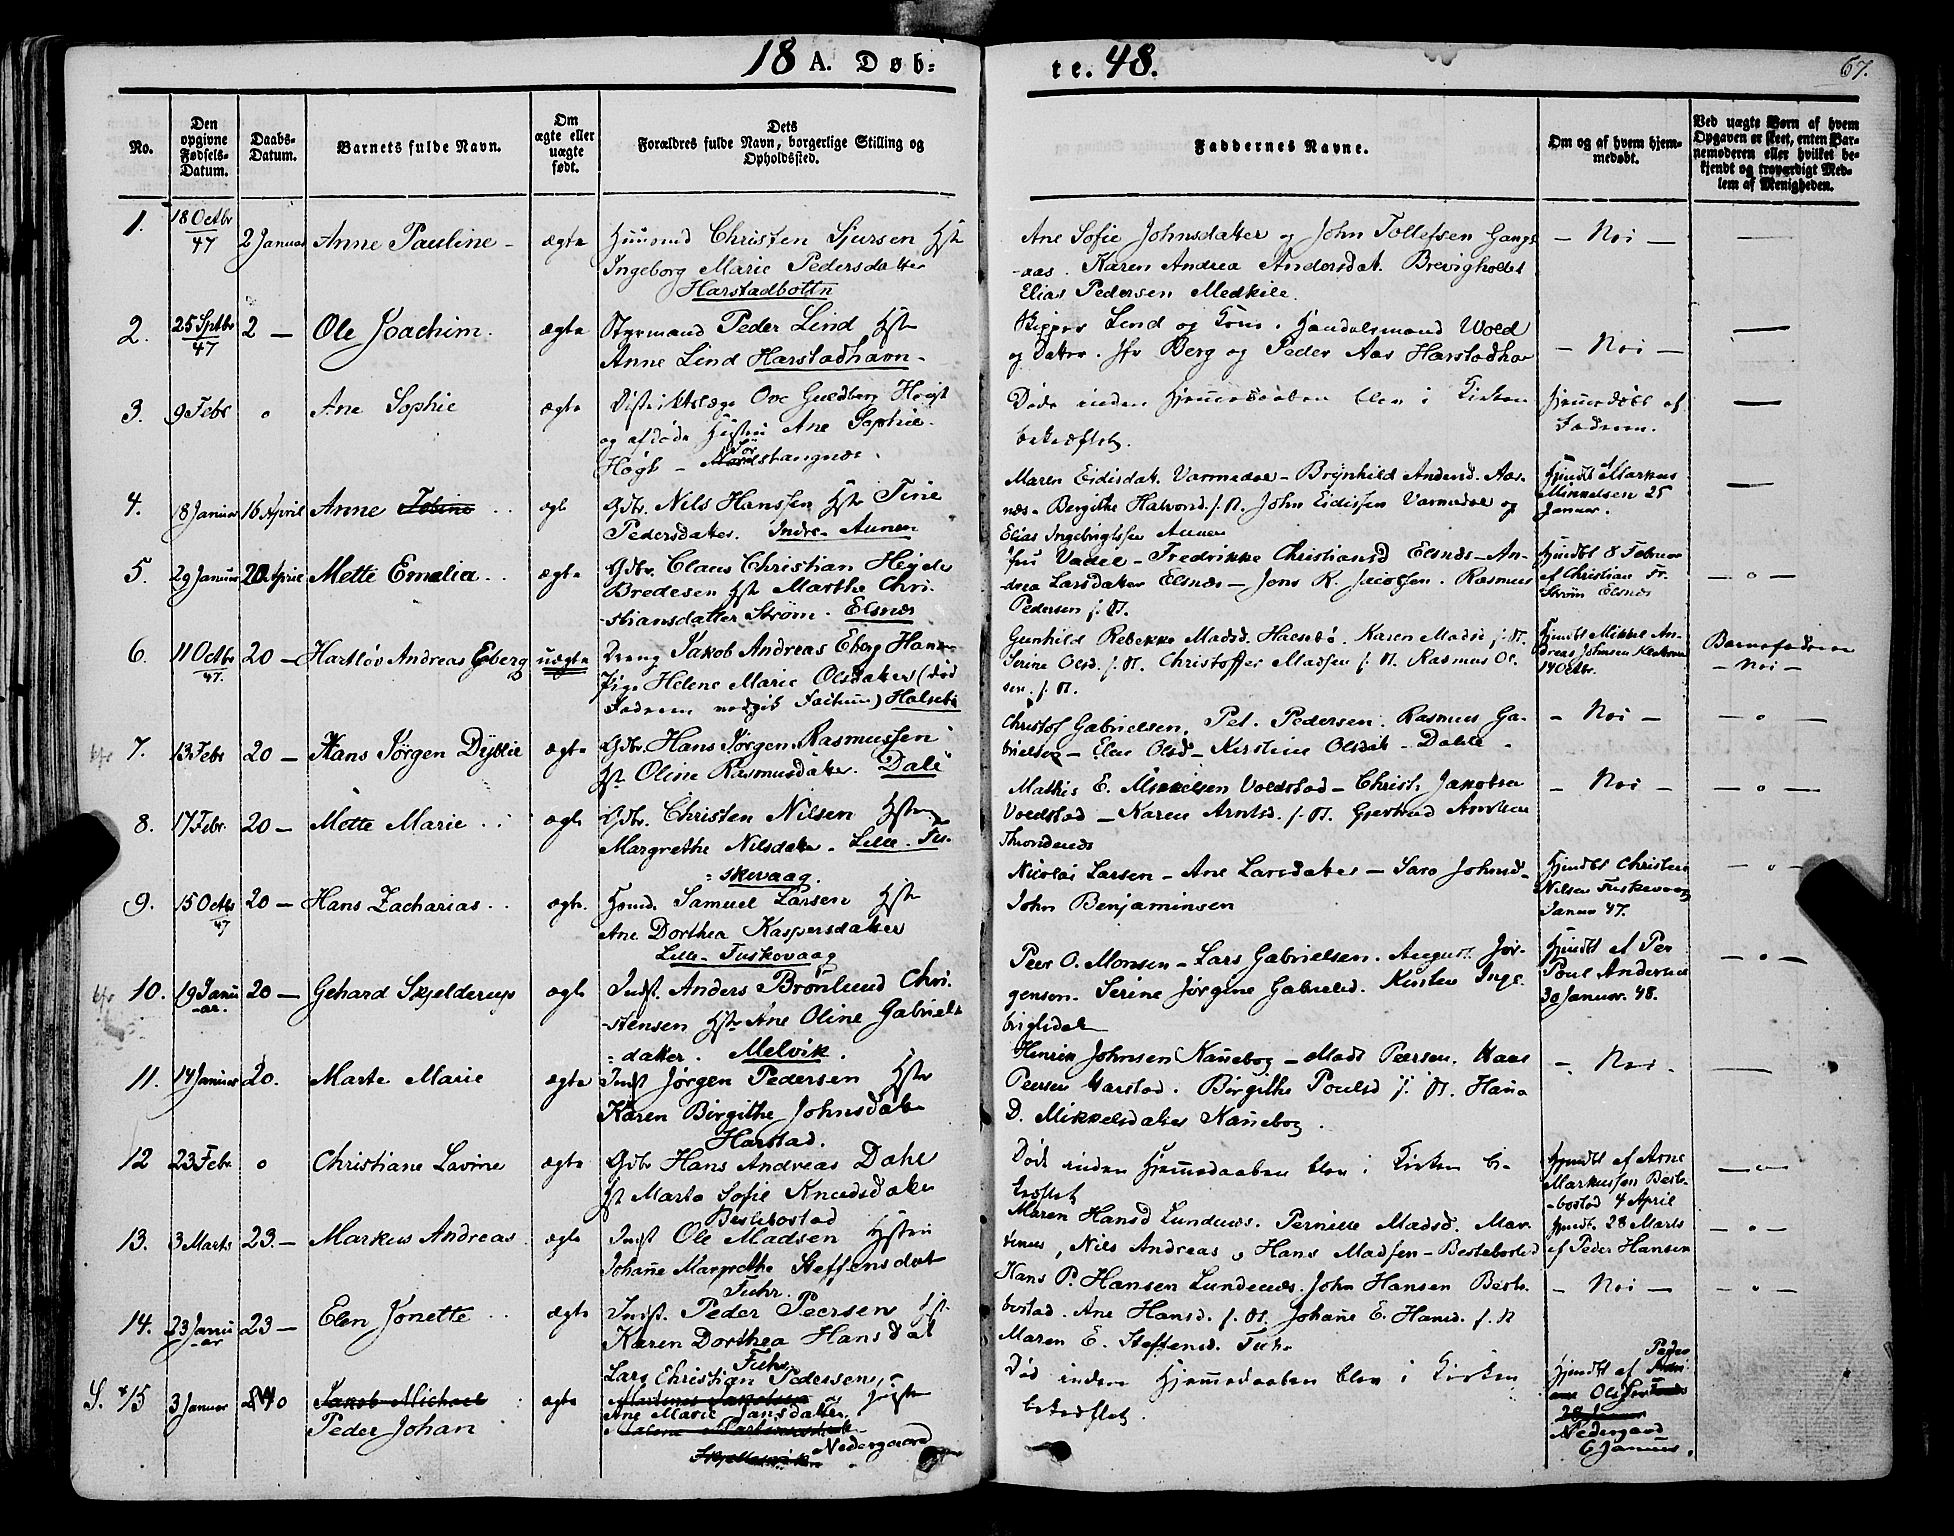 18 A. Døb-
te. 48.
67.
No.
Den opgivne Fødsels-Datum.
Daabs-Datum.
Barnets fulde Navn.
Om ægte eller uægte født.
Dets Forældres fulde Navn, borgerlige Stilling og Opholdssted.
Faddernes Navne.
Om og af hvem hjem-medøbt.
Ved uægte Børn af hvem Opgaven er skeet, enten Bar-nemoderen eller hvilket be-kjendt og troværdigt Med-lem af Menigheden.
1. 18 Octbr 47 2 Januar Anne Pauline - ægte Christen Sjursen Hst
Ingeborg Marie Pedersdatter
Harstadbottn
Ane Sofie Johnsdatter og John Tollefsen Gangs
-aas. Karen Andrea Andersdat. Brevigholdet
Elias Pedersen Medkile.
- Nei -
2. 25 Sptbr 47 2 - Ole Joachim. ægte Styrmand Peder Lind Hst
Anne Lind Harstadhavn -
Skipper Lind og Kone. Handelsmand Wold
og Datter. Jfr Berg og Peder Aas Harstadha
- Nei -
3. 9 Febr o Ane Sophie ægte Distriktslæge Ove Guldberg Høgh
og afdøde Hustru Ane Sophie
Høgh -
Døde inden Hjemmedaaben blev i Kirken
bekræftet.
Hjemmedøbt af
Faderen.
4. 18 Januar 16 April Anne Tobine ægte Gdbr. Nils Hanssen Hst Tine
Pedersdatter. Indre-Aunen
Maren Eidisdat. Varmedal - Brynhild Andersd. Aas-
næs - Bergithe Halvorsd. s. st. John Eidissen Varmedal og
Elias Ingebrigtsen Aunen
Hjmdbt af Markus
Mikkelsen 25
Januar.
5. 29 Januar 20 April Mette Emalia ægte Gdbr. Claus Christian Heyde
Bredesen Hst Marthe Chri-
stiansdatter Strøm. Elsnæs
Fru Vadel - Fredrikke Christiansd Elsnæs - An-
drea Larsdatter Elsnæs - Jens K. Jacobsen. Rasmus
Pedersen s. st.
Hjmdbt 8 Februar
af Christian Fr.
Strøm Elsnæs
- o -
6. 11 Octbr 47. 20 - Hartløv Andreas Eberg uægte Dreng Jakob Andreas Eberg
Pige Helene Marie Olsdatter (død
Faderen
Gunhild Rebekke Madsd. Karen Madsd s. st.
Serine Olsd. s. st. Christoffer Madsen s. st. Rasmus Ol-
sen. s. st.
Hjmdbt Mikkel An-
dreas Johnsen
14 Octbr.
Barnefaderen
- Nei -
7. 13 Febr 20 - Hans Jørgen Dyblie ægte Gdbr. Hans Jørgen Rasmussen
Hst Oline Rasmusdatter. Dale
Christof Gabrielsen. Pet. Pedersen. Rasmus Ga-
brielsen - Elen Olsd - Kirstine Olsdt - Dahle -
- Nei -
- o -
8. 17 Febr. 20 - Mette Marie ægte Gdbr. Christen Nilsen Hstru
Margrethe Nilsdatter - Lille-Tu-
skevaag.
Mathis E. Mikkelsen Voldstad - Christ. Jakobsen
Voldstad - Karen Arntsd. s. st. Gjertrud
Throndenæs
- Nei -
- o -
9. 15 Octbr 47 20 - Hans Zacharias ægte. Hsmd. Samuel Larsen Hst
Ane Dorthea Kaspersdatter
Lille-Tuskevaag
Nicolai Larsen - Ane Larsdatter - Sara Johnsd -
John Benjaminsen
Hjmdbt Christen
Nilsen Tuskevaag
Januar 47.
- o -
10. 19 Janu-ar. 20 - Gehard Skjelderup ægte Indst. Anders Brønlund Chri-
stensen Hst Ane Oline Gabriels-
datter. Melvik.
Peer O. Monsen - Lars Gabrielsen. August Jør-
gensen. Serine Jørgine Gabrielsd. Kirsten Inge-
brigtsdat
Hjmdbt af Per
Poul Andersen
30 Januar. 48.
- o -
11. 14 Januar 20. Marte Marie ægte Indst Jørgen Pedersen Hstr
Karen Birgithe Johnsdatter
Harstad.
Henrik Johnsen Kanebog - Mads Peersen. Haas
Peersen Harstad. Birgithe Poulsd s. st. Hana
D. Mikkelsdatter Kanebog.
- Nei -
12 23 Febr. o Christiane Lavine ægte Gdbr Hans Andreas Dahl
Hst Marta Sofie Knudsdatter
Bestebostad
Død inden Hjemmedaaben blev i Kirken be-
kræftet
Hjmdbt af Arne
Markussen Beste-
bostad 4 April
- o -
13. 3 Marts 23. - Markus Andreas ægte Indst Ole Madsen Hstru
Johane Margrethe Steffensdat
Fuhr.
Maren Hansd Lundenæs. Pernille Madsd. Mar-
tenus, Nils Andreas, Hans Madsen - Bestebostad
Hjmdbt. 28 Marts
af Peder Hansen
- o -
14. 23 Janu-ar 23 - Elen Jonette ægte Indst. Peder Peersen Hst.
Karen Dorthea Hansdat
Fuhr
Hans P. Hansen Lundenæs. John Hansen Beste-
bostad. Ane Hansd. s. st. Johane E. Hansd. s. st
Maren E. Steffensd. Fuhr
- Nei -
- o -
S. 15 3 Januar o Jakob Michael
Peder Johan
ægte Lars Christian Pedersen,
Martinus Jakobsen Hustru
Ane Marie Jansdatter,
Nedergaard
Død inden Hjemmedaaben blev i Kirken
bekræftet.
Hjmdbt af Peder
Nedergaard
6 Januar.